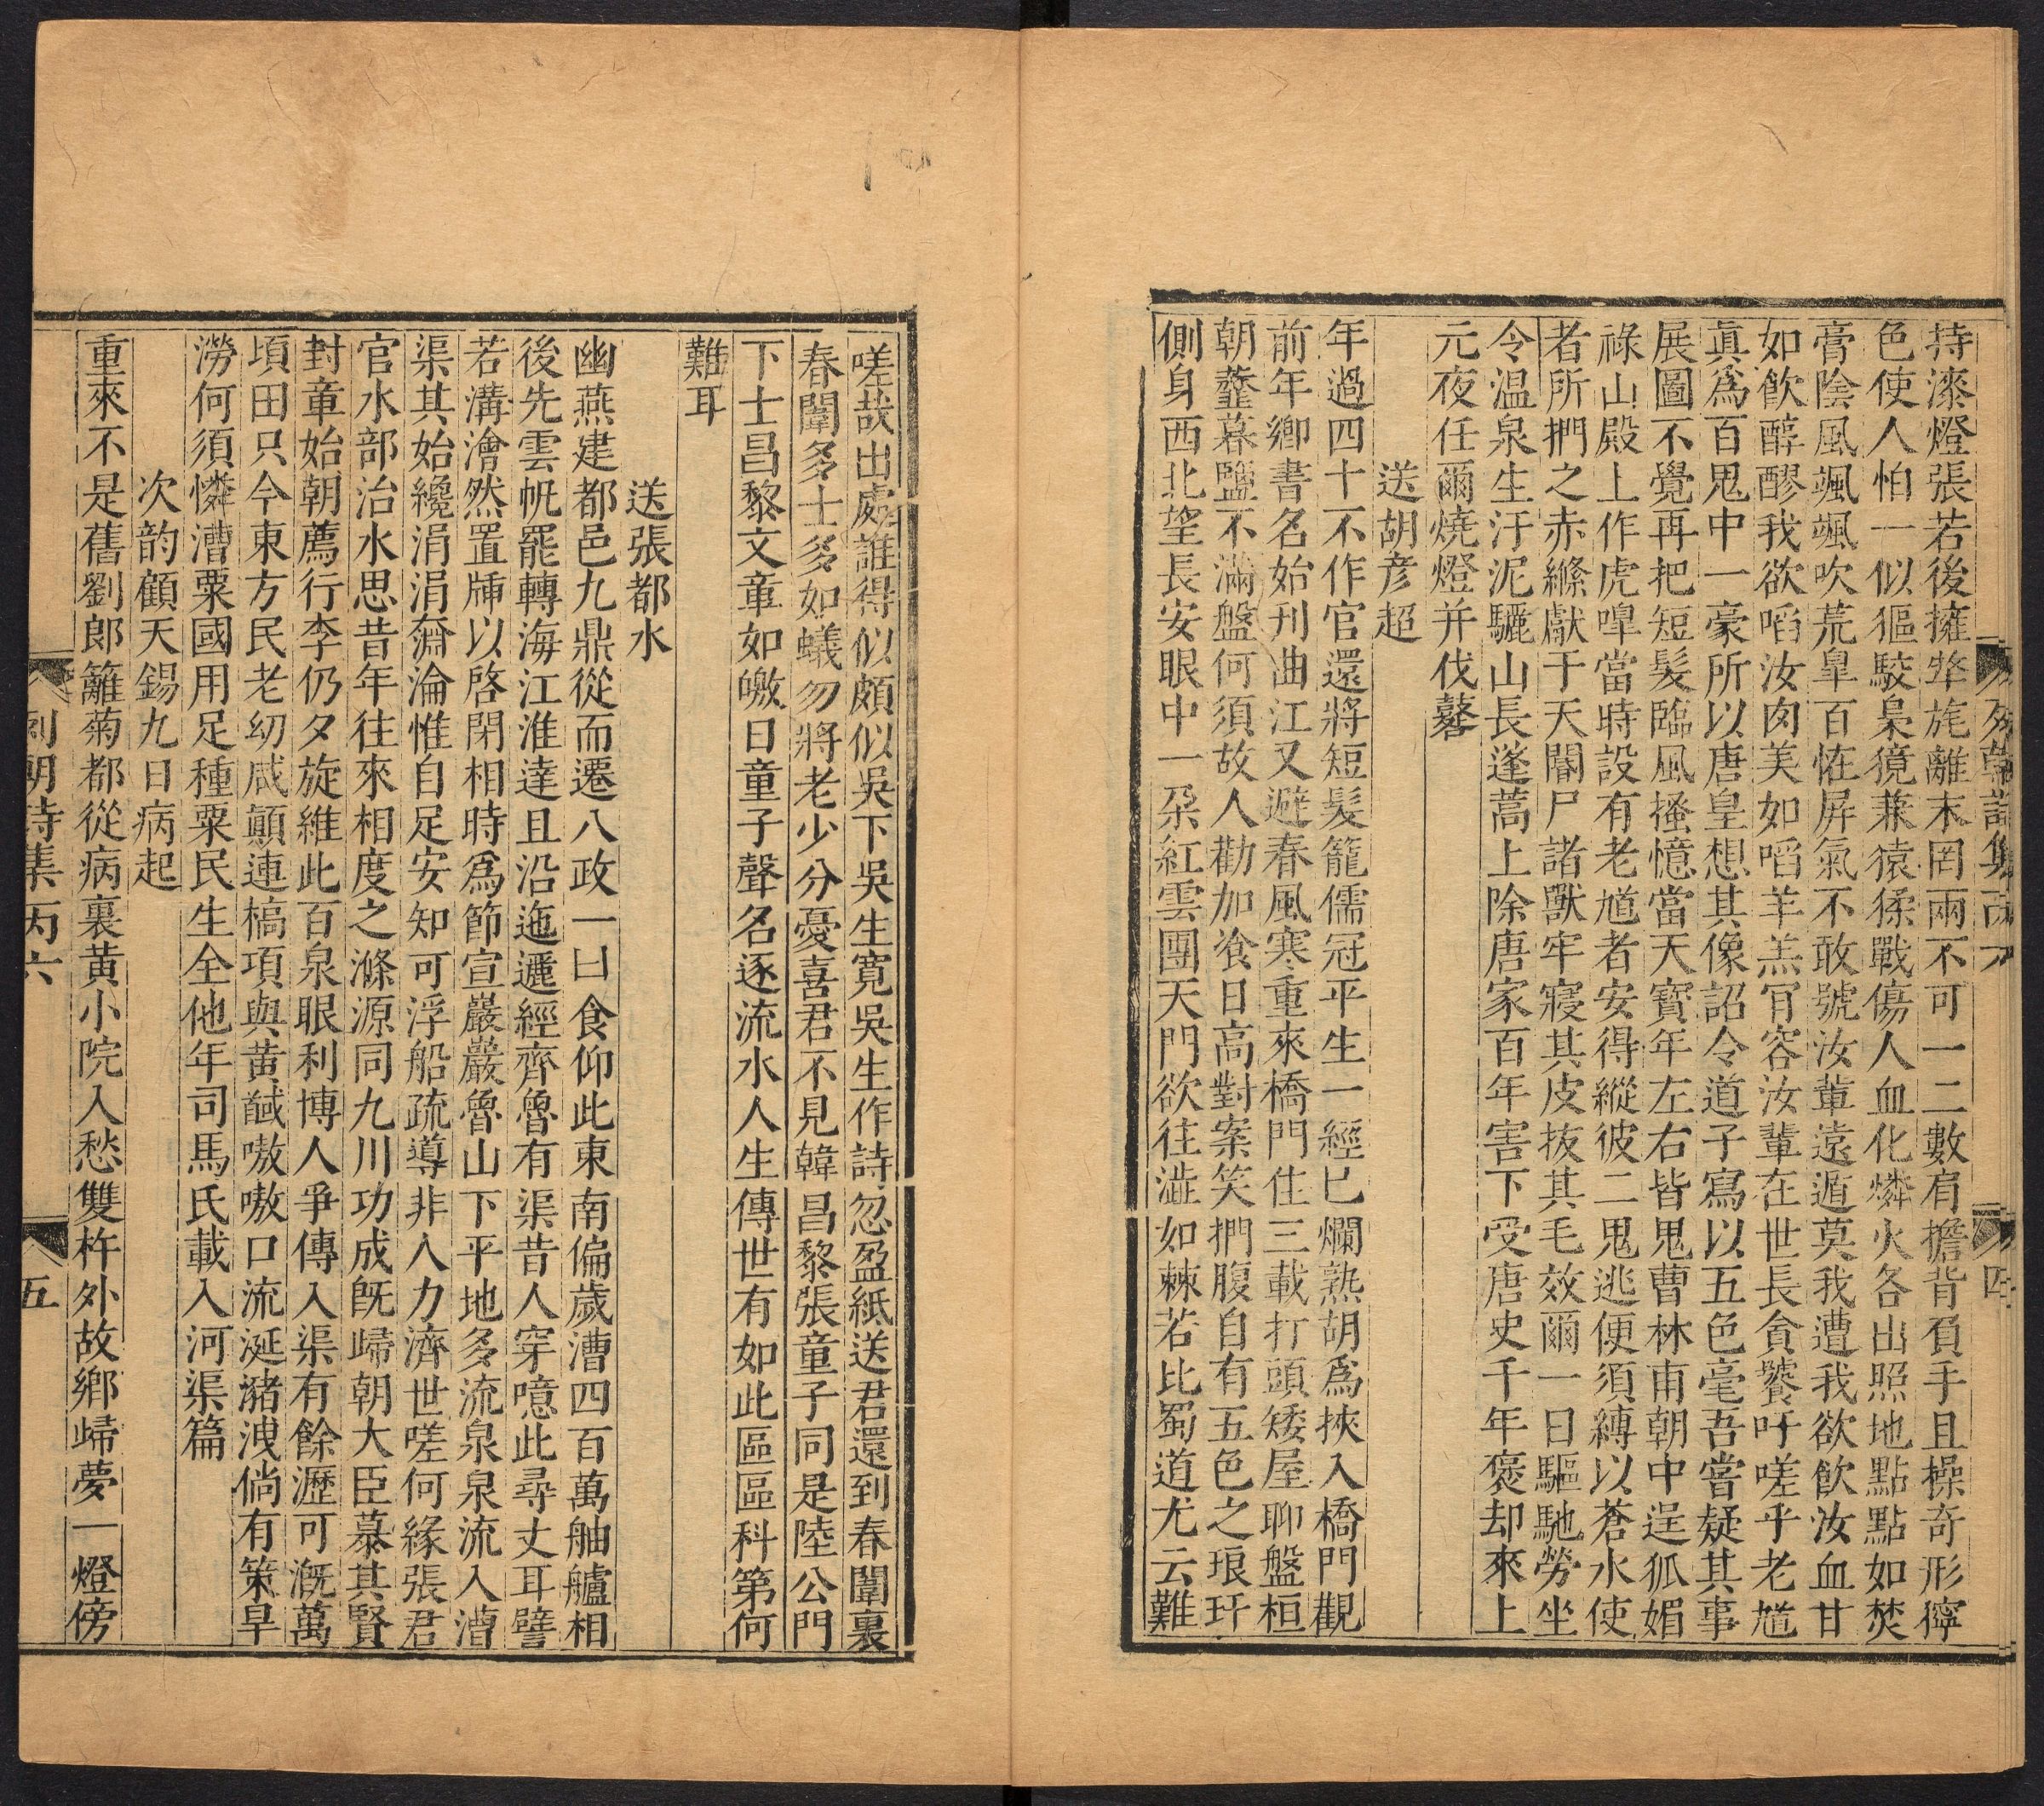 持漆燈張若後擁斾旄離末罔兩不可一二數肩擔背負手且操奇形獰
色使人怕一似貙駮梟獍兼猿猱戰傷人血化燐火各出照地點點如焚
膏陰風颯颯吹荒臯百恠屏氣不敢號汝輩遠遁莫我遭我欲飲汝血甘
如飲醇醪我欲啗汝肉美如啗羊羔肎容汝輩在世長貪饕吁嗟乎老馗
眞爲百鬼中一豪所以唐皇想其像詔令道子寫以五色毫吾嘗疑其事
展圖不覺再把短髮臨風搔憶當天寶年左右皆鬼曹林甫朝中逞狐媚
祿山殿上作虎嘷當時設有老馗者安得縱彼二鬼逃便須縛以蒼水使
者所捫之赤絛獻于天閽尸諸獸牢寢其皮拔其毛效爾一日驅馳勞坐
令温泉生汙泥驪山長蓬蒿上除唐家百年害下受唐史千年褒却來上
元夜任爾燒燈并伐鼛
送胡彦超
年過四十不作官還將短髮籠儒冠平生一經已爛熟胡爲挾入橋門觀
前年鄉書名始刋曲江又避春風寒重來橋門住三載打頭矮屋聊盤桓
朝虀暮鹽不滿盤何須故人勸加飡日高對案笑捫腹自有五色之琅玕
側身西北望長安眼中一朶紅雲團天門欲往澁如棘若比蜀道尤云難
四
嗟哉出處誰得似頗似吳下吳生寬吳生作詩忽盈紙送君還到春闈裏
春闈多士多如蟻勿將老少分憂喜君不見韓昌黎張童子同是陸公門
下士昌黎文章如皦日童子聲名逐流水人生傳世有如此區區科第何
難耳
送張都水
幽燕建都邑九鼎從而遷八政一曰食仰此東南偏歲漕四百萬舳艫相
後先雲帆罷轉海江淮達且沿迤邐經齊魯有渠昔人穿噫此尋丈耳譬
若溝澮然置牐以啓閉相時爲節宣巖巖魯山下平地多流泉泉流入漕
渠其始纔涓涓奫淪惟自足安知可浮船疏導非人力濟世嗟何緣張君
官水部治水思昔年往來相度之滌源同九川功成旣歸朝大臣慕其賢
封章始朝薦行李仍夕旋維此百泉眼利博人爭傳入渠有餘瀝可漑萬
項田只今東方民老幼咸顚連槁項與黃馘嗷嗷口流涎瀦洩倘有策旱
澇何須憐漕粟國用足種粟民生全他年司馬氏載入河渠篇
次韵顧天錫九日病起
重來不是舊劉郞籬菊都從病裏黃小院入愁雙杵外故鄉歸夢一燈傍
列朝詩集丙六
五